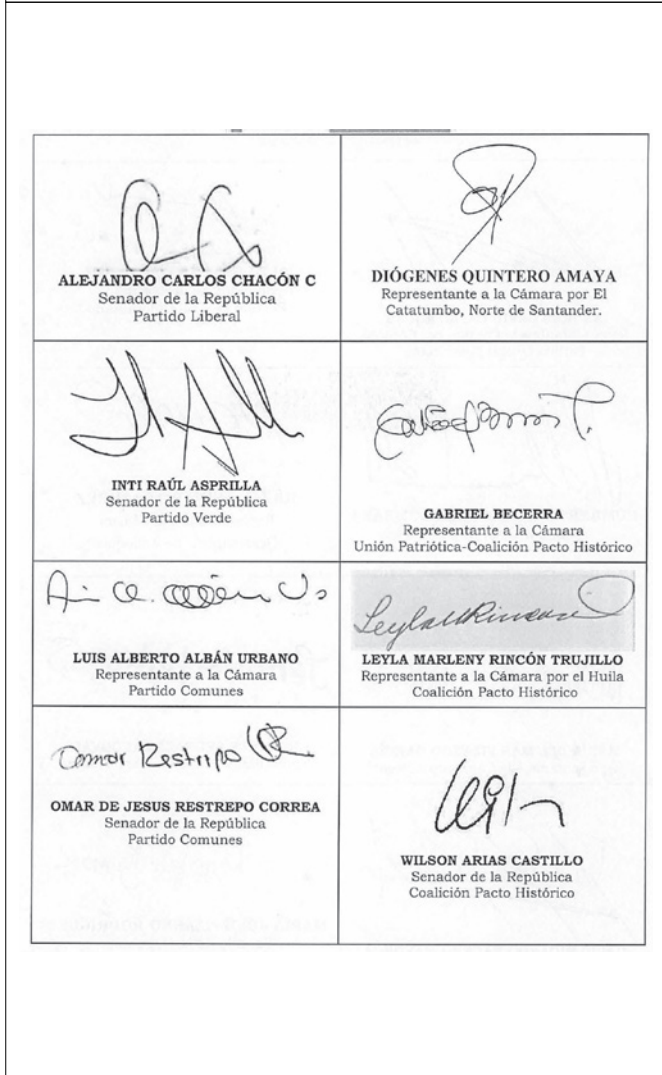 ALEJANDRO CARLOS CHACÓN C
Senador de la República
Partido Liberal
DIÓGENES QUINTERO AMAYA
Representante a la Cámara por El
Catatumbo, Norte de Santander.
INTI RAÚL ASPRILLA
Senador de la República
Partido Verde
GABRIEL BECERRA
Representante a la Cámara
Unión Patriótica-Coalición Pacto Histórico
LUIS ALBERTO ALBÁN URBANO
Representante a la Cámara
Partido Comunes
LEYLA MARLENY RINCÓN TRUJILLO
Representante a la Cámara por el Huila
Coalición Pacto Histórico
Omar Restrepo
OMAR DE JESUS RESTREPO CORREA
Senador de la República
Partido Comunes
WILSON ARIAS CASTILLO
Senador de la República
Coalición Pacto Histórico